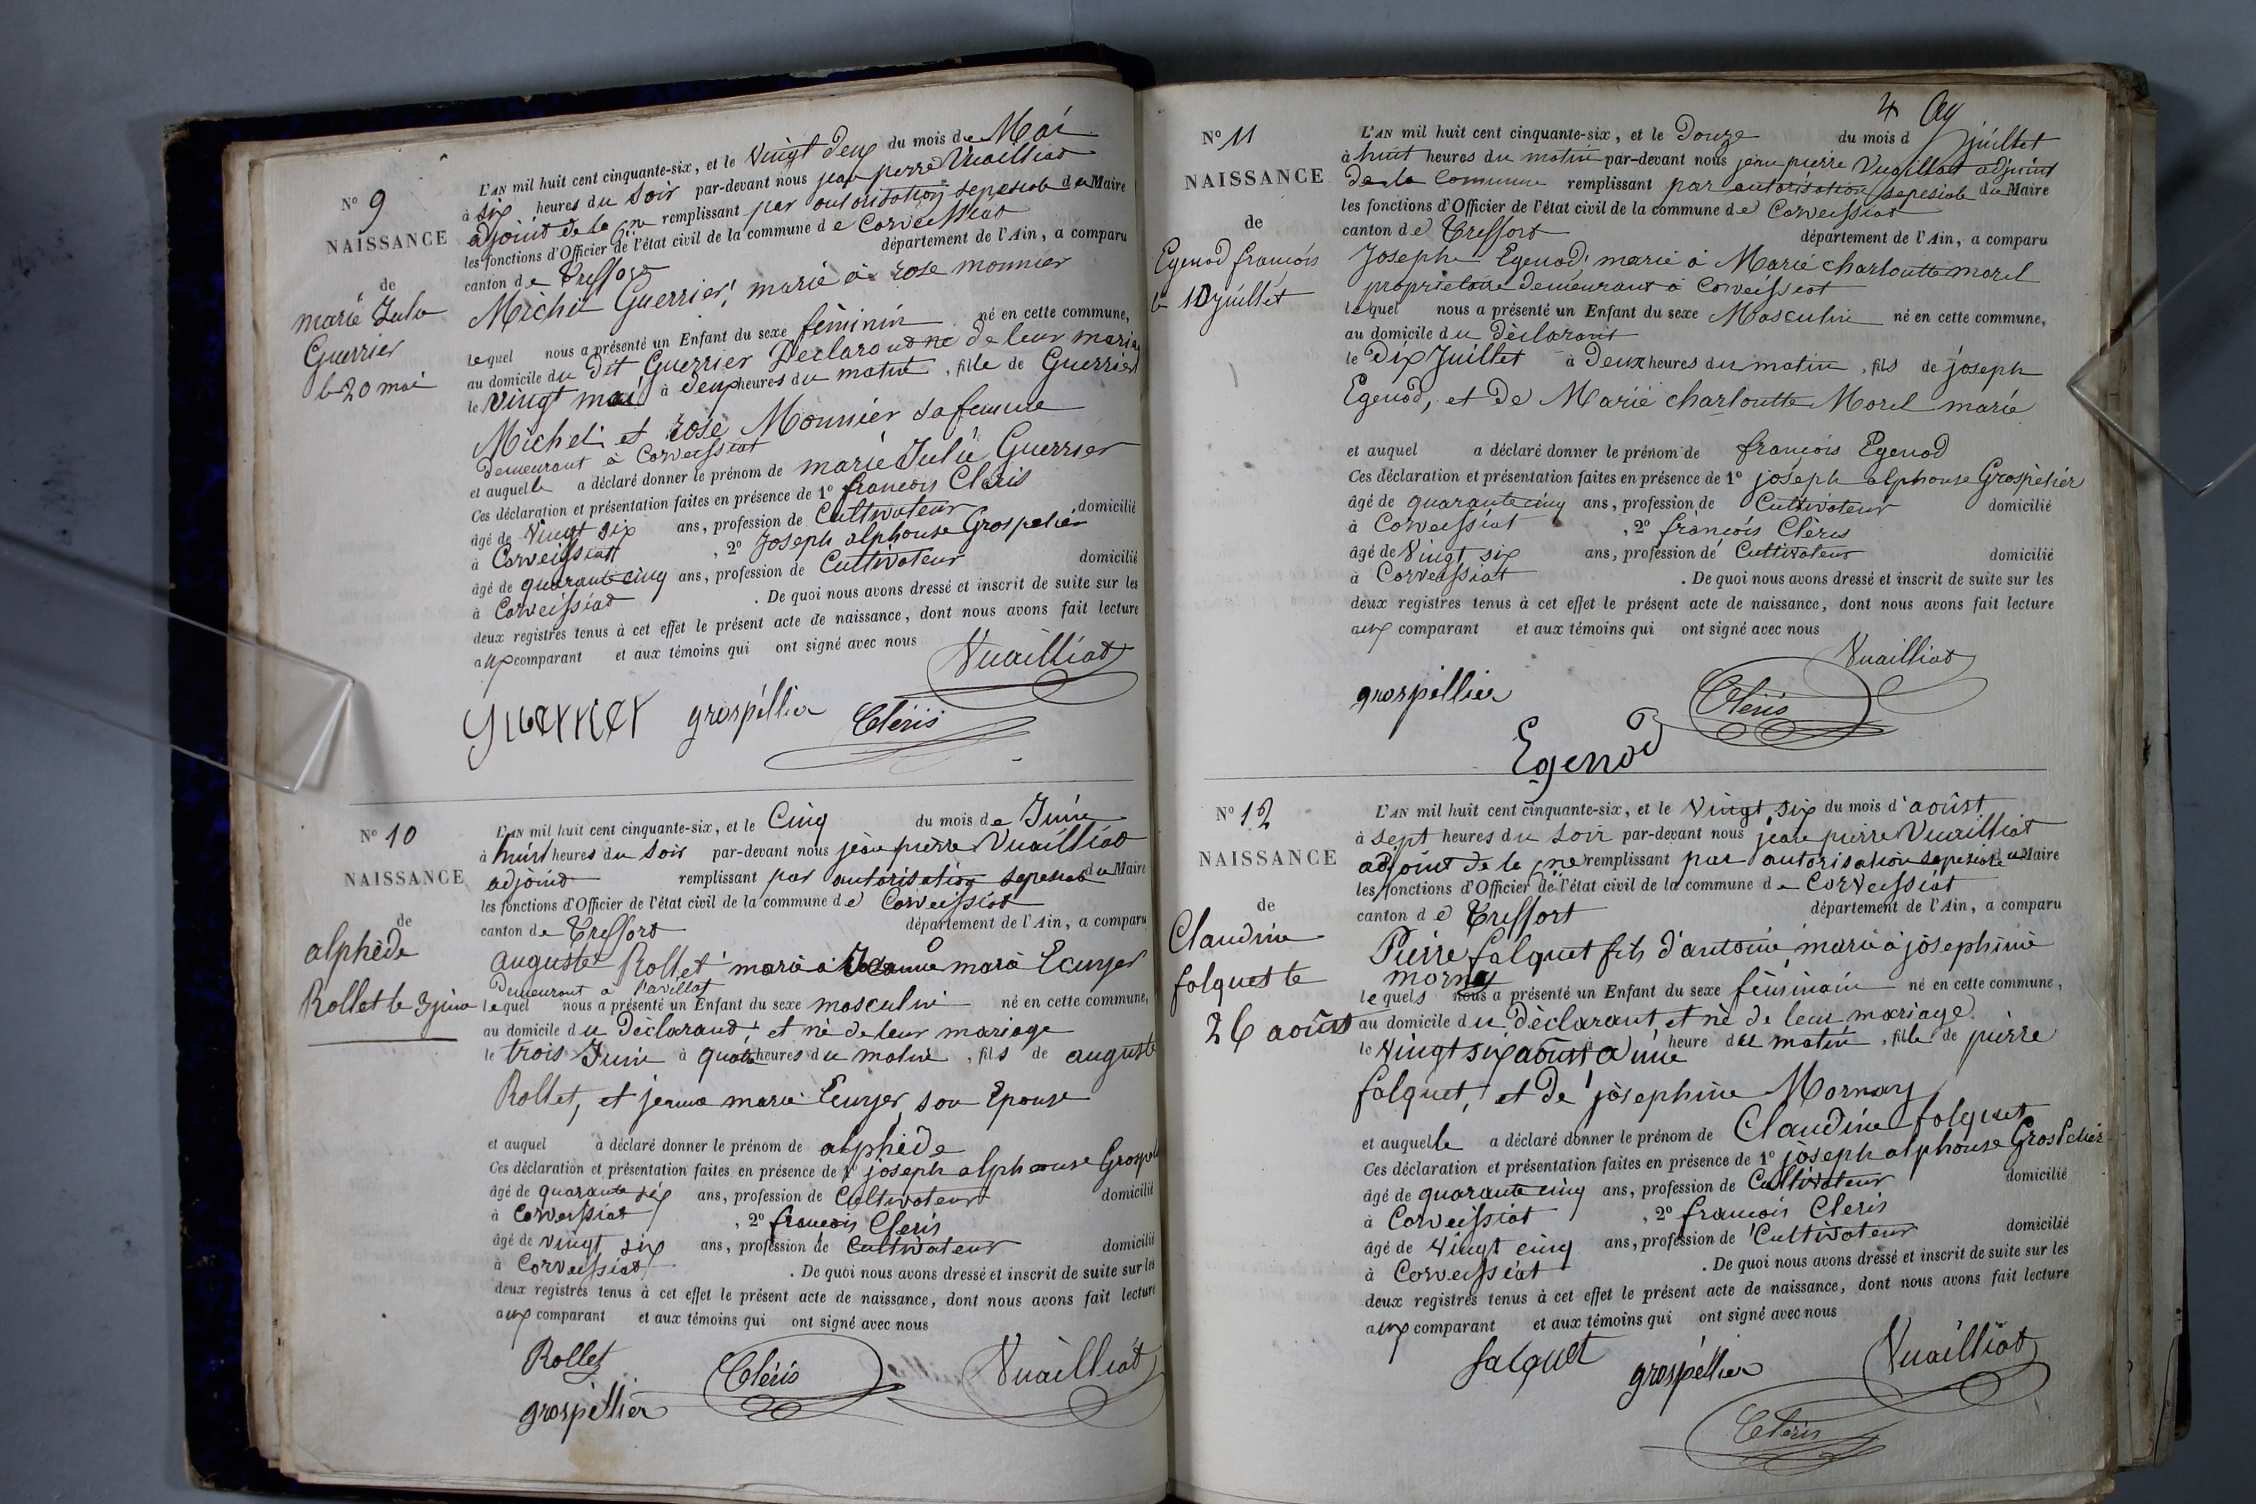 N° 9
NAISSANCE
de
marie Julie
Guerrier
le 20 mai
L'AN mil huit cent cinquante-six, et le Vingt deux du mois de Mai
à six heures du soir par-devant nous jean pierre Vuailliat
adjoint de la Cne remplissant par autorisation sepesiale du Maire
les fonctions d'Officier de l'état civil de la commune de Corveissiat
canton de Treffort département de l'Ain, a comparu
Michel Guerrier, marié à rose monnier
lequel nous a présenté un Enfant du sexe féminin né en cette commune,
au domicile du dit Guerrier Declarant né de leur maria
le vingt mai à deux heures du matin, fille de Guerrier
Michel et rose Monnier sa femme
demeurant à Corveissiat
et auquelle a déclaré donner le prénom de marie Julie Guerrier
Ces déclaration et présentation faites en présence de 1° francois Cléris
âgé de Vingt six ans, profession de Cultivateur domicilié
à Corveissiat, 2° Joseph alphonse Grospelier
âgé de quarante cinq ans, profession de Cultivateur domicilié
à Corveissiat. De quoi nous avons dressé et inscrit de suite sur les
deux registres tenus à cet effet le présent acte de naissance, dont nous avons fait lecture
aux comparant et aux témoins qui ont signé avec nous
Vuailliat
guerrier grospéllier Cléris
N° 10
NAISSANCE
de
alphède
Rollet le 3 juin
L'AN mil huit cent cinquante-six, et le Cinq du mois de Juin
à huit heures du soir par-devant nous jean pierre Vuailliat
adjoint remplissant par autorisation sepesiale du Maire
les fonctions d'Officier de l'état civil de la commune de Corveissiat
canton de Treffort département de l'Ain, a comparu
auguste Rollet marié à Jeanne marie Ecuyer
demeurant à
lequel nous a présenté un Enfant du sexe masculin né en cette commune,
au domicile du Déclarant, et né de leur mariage
le trois Juin à quatre heures du matin, fils de auguste
Rollet, et jeanne marie Ecuyer, son Epouse
et auquel a déclaré donner le prénom de alphède
Ces déclaration et présentation faites en présence de 1° joseph alphonse Grospel
âgé de quarante six ans, profession de Cultivateur domicilié
à Corveissiat, 2° francois Cleris
âgé de vingt six ans, profession de Cultivateur domicilié
à Corveissiat. De quoi nous avons dressé et inscrit de suite sur les
deux registres tenus à cet effet le présent acte de naissance, dont nous avons fait lecture
aux comparant et aux témoins qui ont signé avec nous
Rollet Cléris Vuailliat
grospéllier
4
N° 11
NAISSANCE
de
Egenod françois
le 10 juillet
L'AN mil huit cent cinquante-six, et le Douze du mois d juillet
à huit heures du matin par-devant nous jean pierre Vuailliat adjoint
de la Commune remplissant par autorisation sepesiale du Maire
les fonctions d'Officier de l'état civil de la commune de Corveissiat
canton de Treffort département de l'Ain, a comparu
Joseph Egenod, marié à Marie charloutte morel
propriétaire demeurant à Corveissiat
lequel nous a présenté un Enfant du sexe Masculin né en cette commune,
au domicile du déclarant
le Dix Juillet à Deux heures du matin, fils de joseph
Egenod, et de Marie charloutte Morel marié
et auquel a déclaré donner le prénom de françois Egenod
Ces déclaration et présentation faites en présence de 1° joseph alphonse Grospèlier
âgé de quarante cinq ans, profession de Cultivateur domicilié
à Corveissiat, 2° françois Cléris
âgé de Vingt six ans, profession de Cultivateur domicilié
à Corveissiat. De quoi nous avons dressé et inscrit de suite sur les
deux registres tenus à cet effet le présent acte de naissance, dont nous avons fait lecture
aux comparant et aux témoins qui ont signé avec nous
Vuailliat
grospéllier Cléris
Egenod
N° 12
NAISSANCE
de
Claudine
folquet le
26 août
L'AN mil huit cent cinquante-six, et le Vingt six du mois d'août
à sept heures du soir par-devant nous jean pierre Vuailliat
adjoint de la Cne remplissant par autorisation sepesiale du Maire
les fonctions d'Officier de l'état civil de la commune de Corveissiat
canton de Treffort département de l'Ain, a comparu
Pierre falquet fils d'antoine, marié à josephine
mornay
lequels nous a présenté un Enfant du sexe féminain né en cette commune,
au domicile du Déclarant, et né de leur mariage.
le Vingt six août à une heure du matin, fille de pierre
folquet, et de josephine Mornay
et auquelle a déclaré donner le prénom de Claudine folquet
Ces déclaration et présentation faites en présence de 1° joseph alphonse GrosPelier
âgé de quarante cinq ans, profession de Cultivateur domicilié
à Corveissiat, 2° francois Cleris
âgé de Vingt cinq ans, profession de Cultivateur domicilié
à Corveissiat. De quoi nous avons dressé et inscrit de suite sur les
deux registres tenus à cet effet le présent acte de naissance, dont nous avons fait lecture
aux comparant et aux témoins qui ont signé avec nous
falquet grospéllier Vuailliat
Cléris